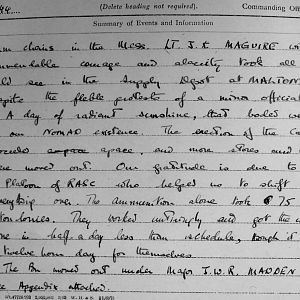 44.... (Delete heading not required). Commanding Off
Summary of Events and Information
chairs in the Mess. LT. J.K MAGUIRE w
commendable courage and alacrity took all
see in the Supply Depot at MALTON
spite the feeble protests of a minor official
A day of radiant sunshine, that boded we
our NOMAD existence. The erection of the Ca
space apace, and more stores and
moved out. Our gratitude is due to
Platoon of RASC who helped us to shift
over. The ammunition alone took 75
lorries. They worked untiringly and got the
in half-a-day less than schedule, though it
twelve hour day for themselves.
The Bn moved out under Major J.W.R. MADDEN
Appendix attached.